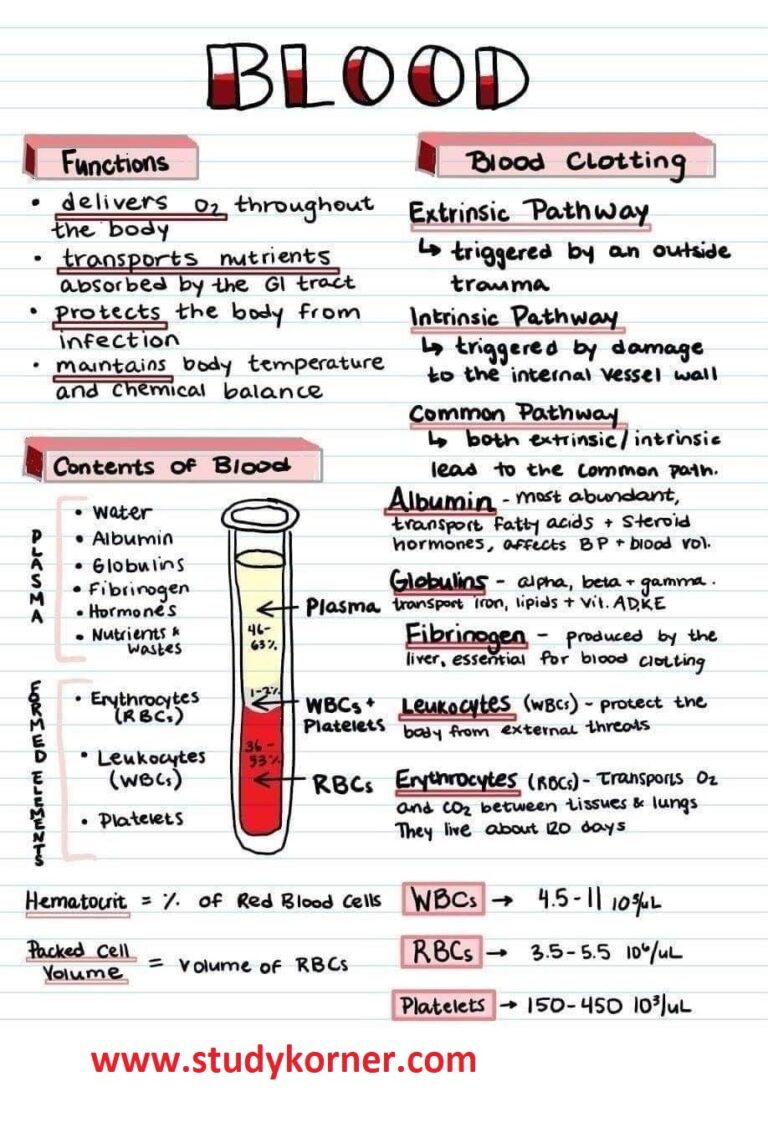 BLOOD
Functions
• delivers O₂ throughout
the body
• transports nutrients
absorbed by the GI tract
• protects the body from
infection
• maintains body temperature
and chemical balance
Contents of Blood
PLASMA
• Water
• Albumin
• Globulins
• Fibrinogen
• Hormones
• Nutrients &
Wastes
FORMED ELEMENTS
• Erythrocytes
(RBCs)
• Leukocytes
(WBCs)
• Platelets
Plasma
46-
63%
1-2%
WBCs +
Platelets
36-
53%
RBCs
Hematocrit = % of Red Blood Cells
Packed Cell
Volume = Volume of RBCs
Blood Clotting
Extrinsic Pathway
↳ triggered by an outside
trauma
Intrinsic Pathway
↳ triggered by damage
to the internal vessel wall
Common Pathway
↳ both extrinsic/intrinsic
lead to the common path.
Albumin - most abundant,
transport fatty acids + steroid
hormones, affects BP + blood vol.
Globulins - alpha, beta + gamma.
transport iron, lipids + Vit. ADKE
Fibrinogen - produced by the
liver, essential for blood clotting
Leukocytes (WBCs) - protect the
body from external threats
Erythrocytes (RBCs) - Transports O₂
and CO₂ between tissues & lungs
They live about 120 days
WBCs → 4.5-11
RBCs → 3.5-5.5 10⁶/uL
Platelets → 150-450 10³/uL
www.studykorner.com